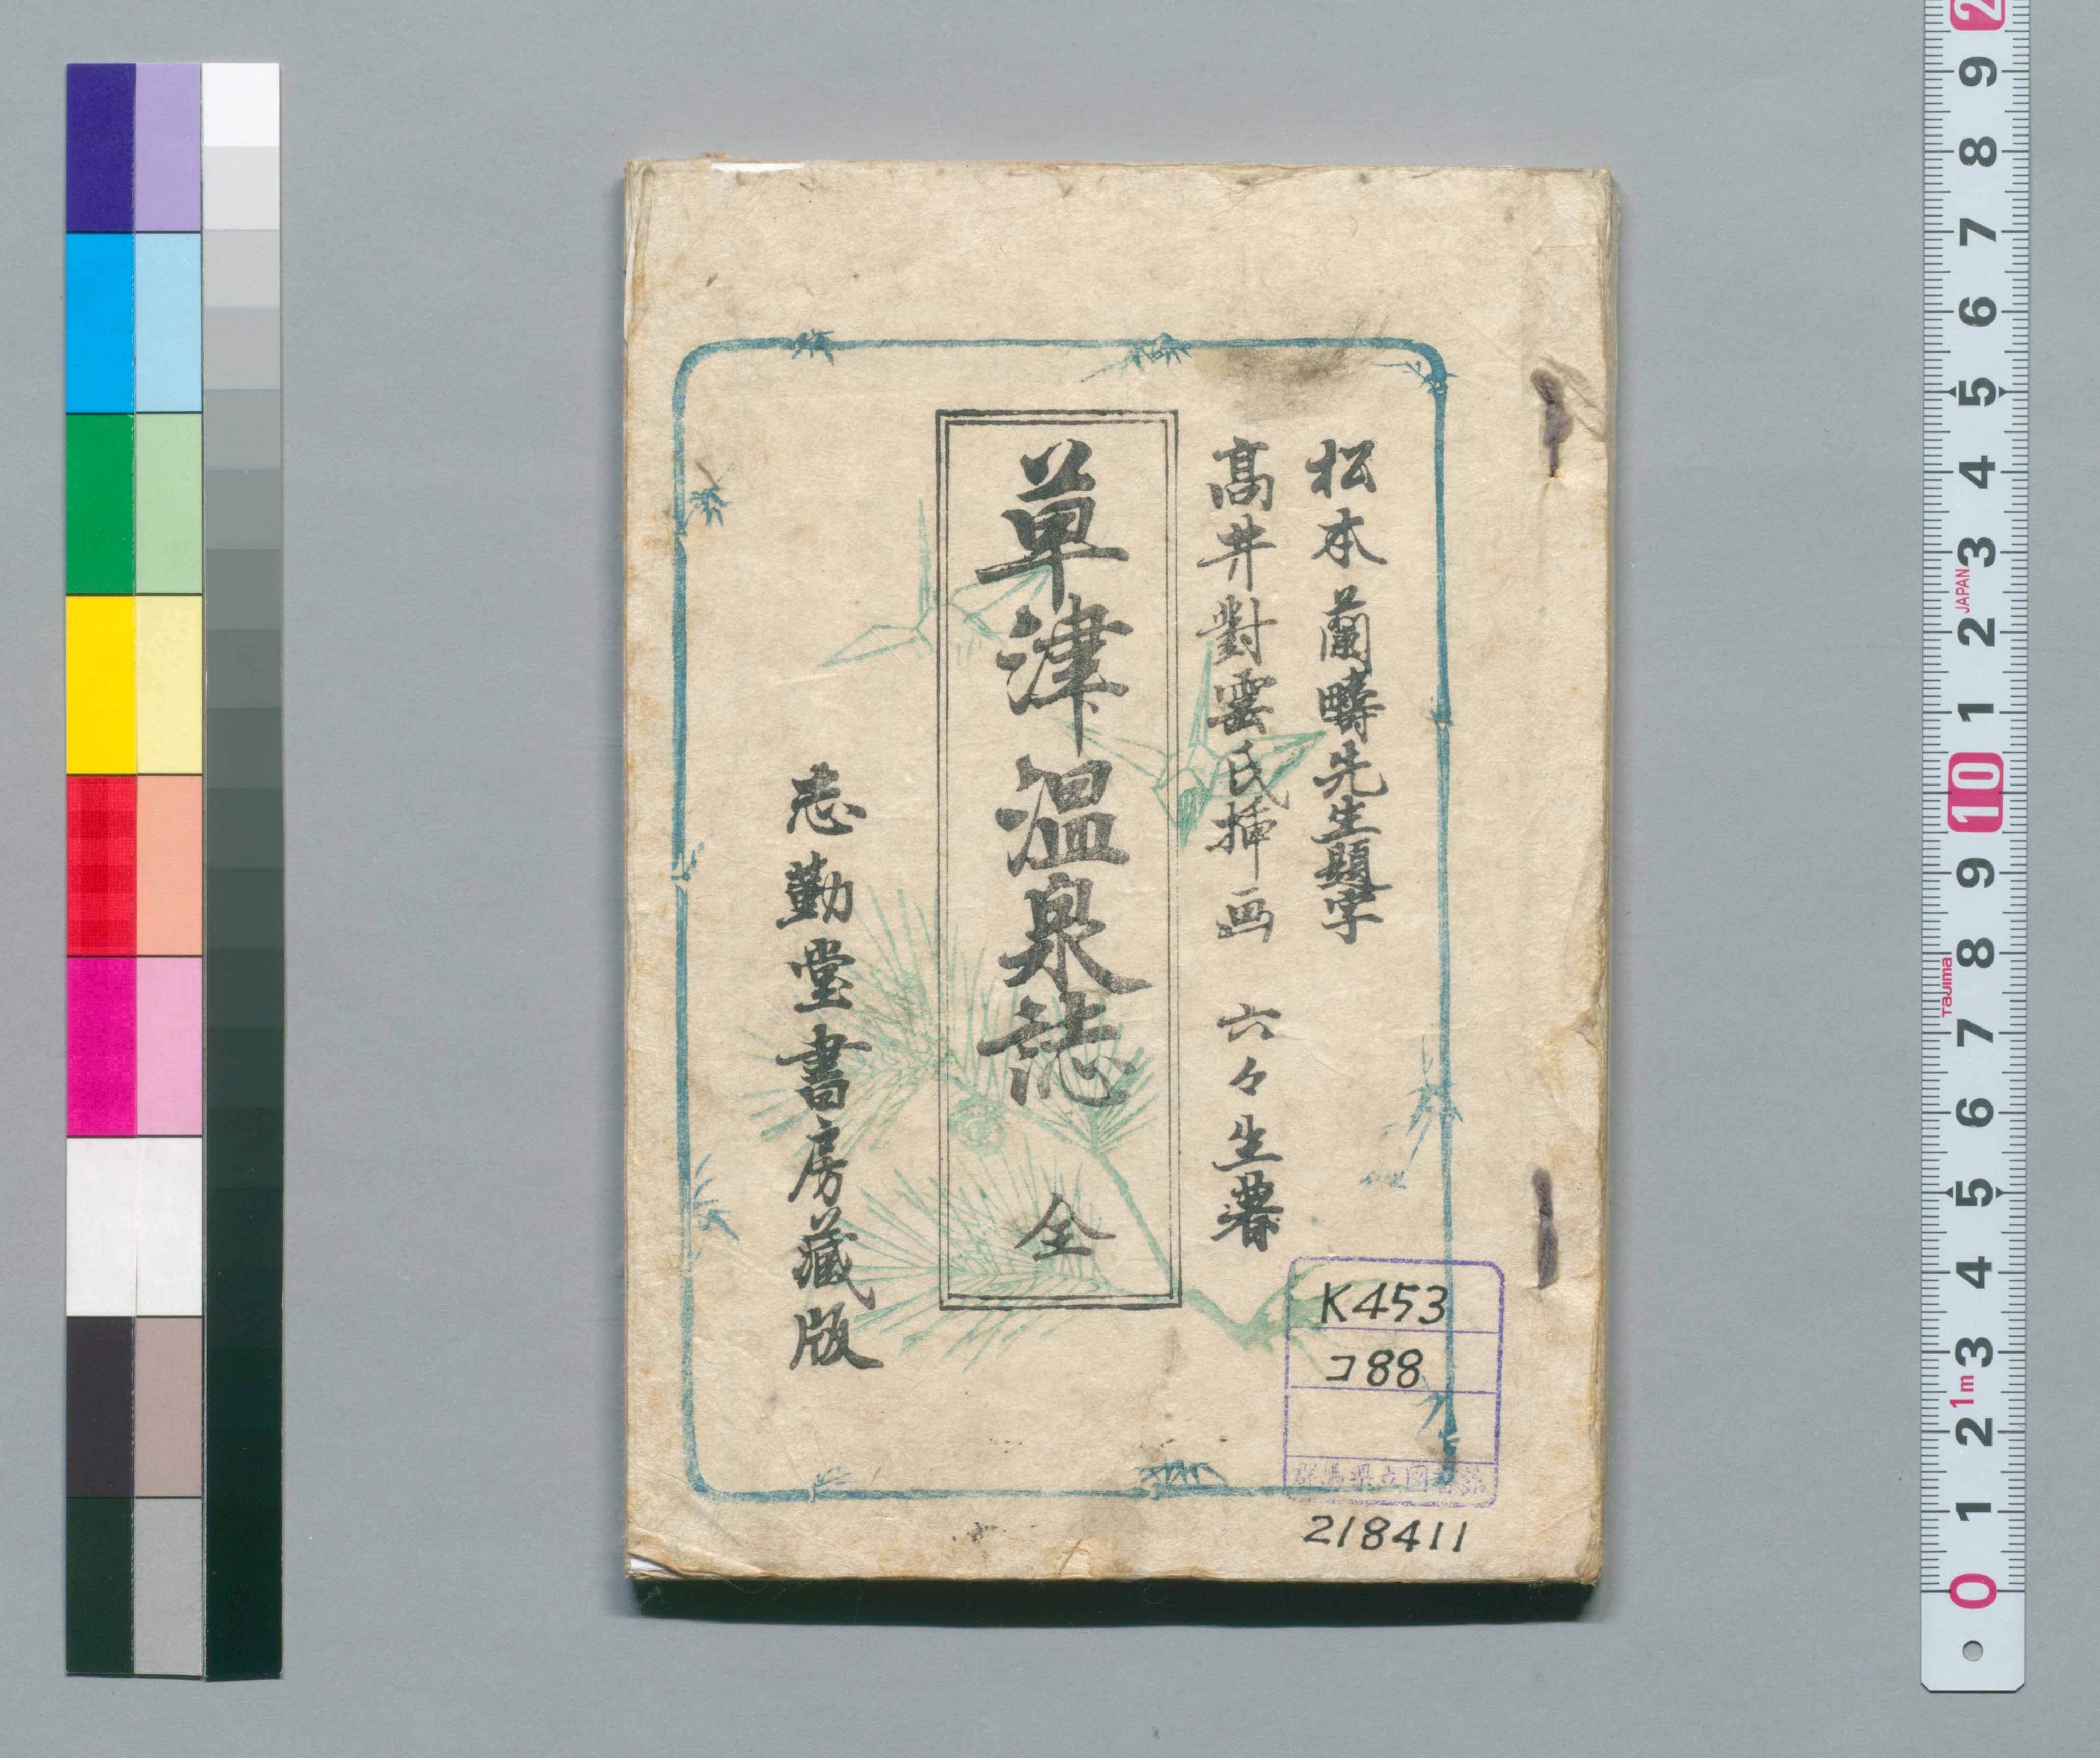 松本蘭疇先生題字
髙井對雲氏挿画　六々生著
草津温泉誌　全
志勤堂書房藏版
K453
コ88
群馬県立図書館
218411
2
9
8
7
6
5
4
3
JAPAN
2
1
10
9
8
Tajima
7
6
5
4
3
1m
2
1
0